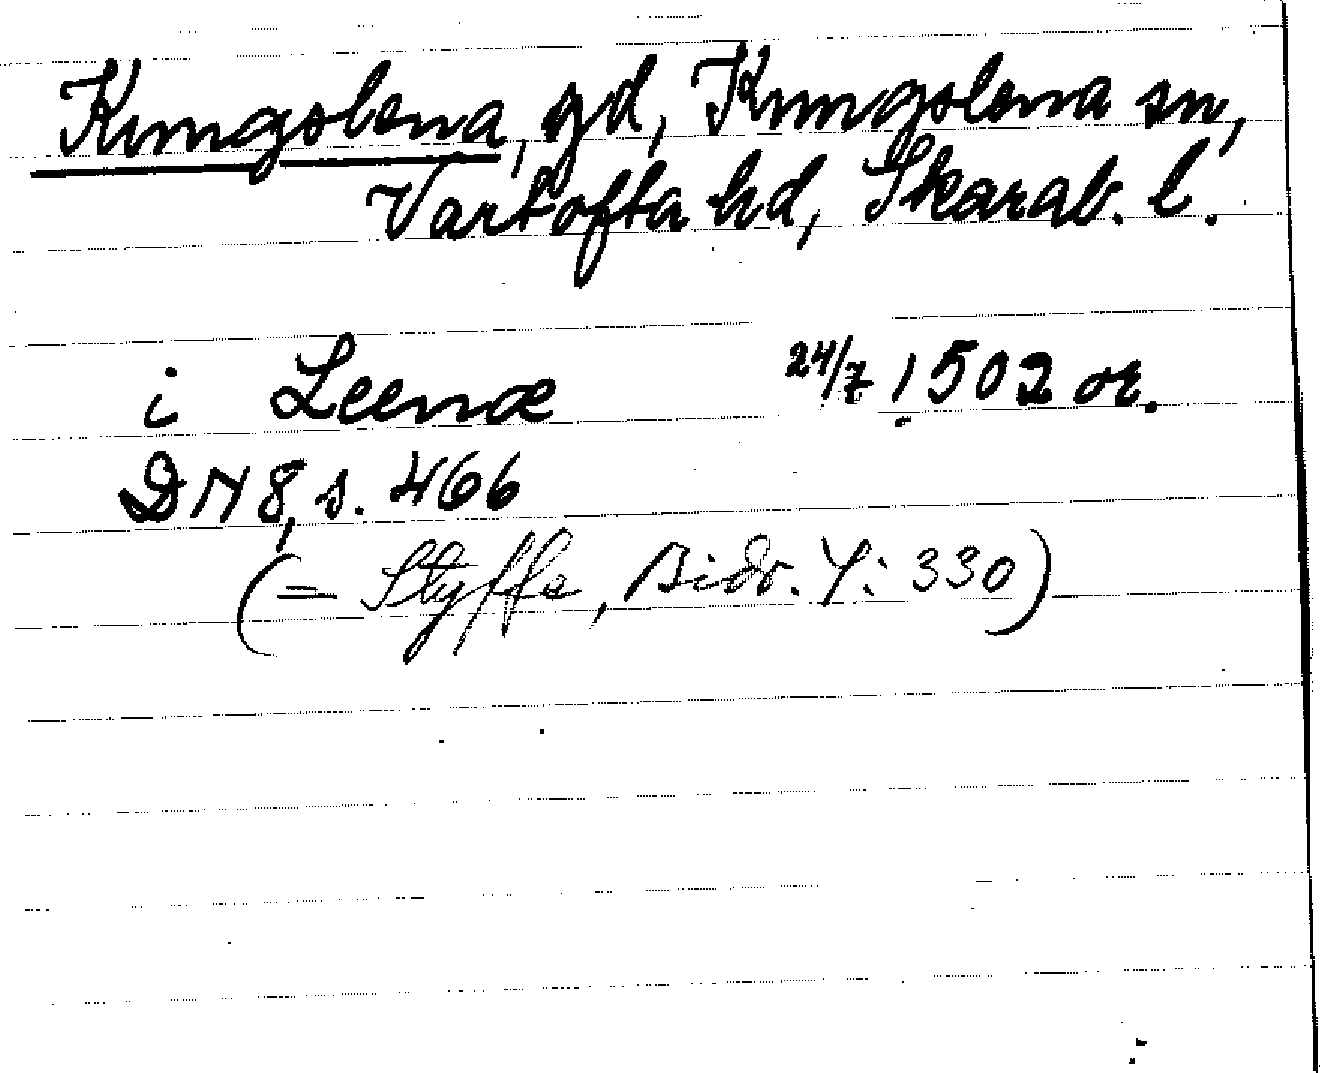 Kungslena, gd, Kungslena sn,
Vartofta hd, Skarab. l.
i Leenæ 24/7 1502 or.
DN 8, s. 466
(= Styffe, Bidr. Y: 330)